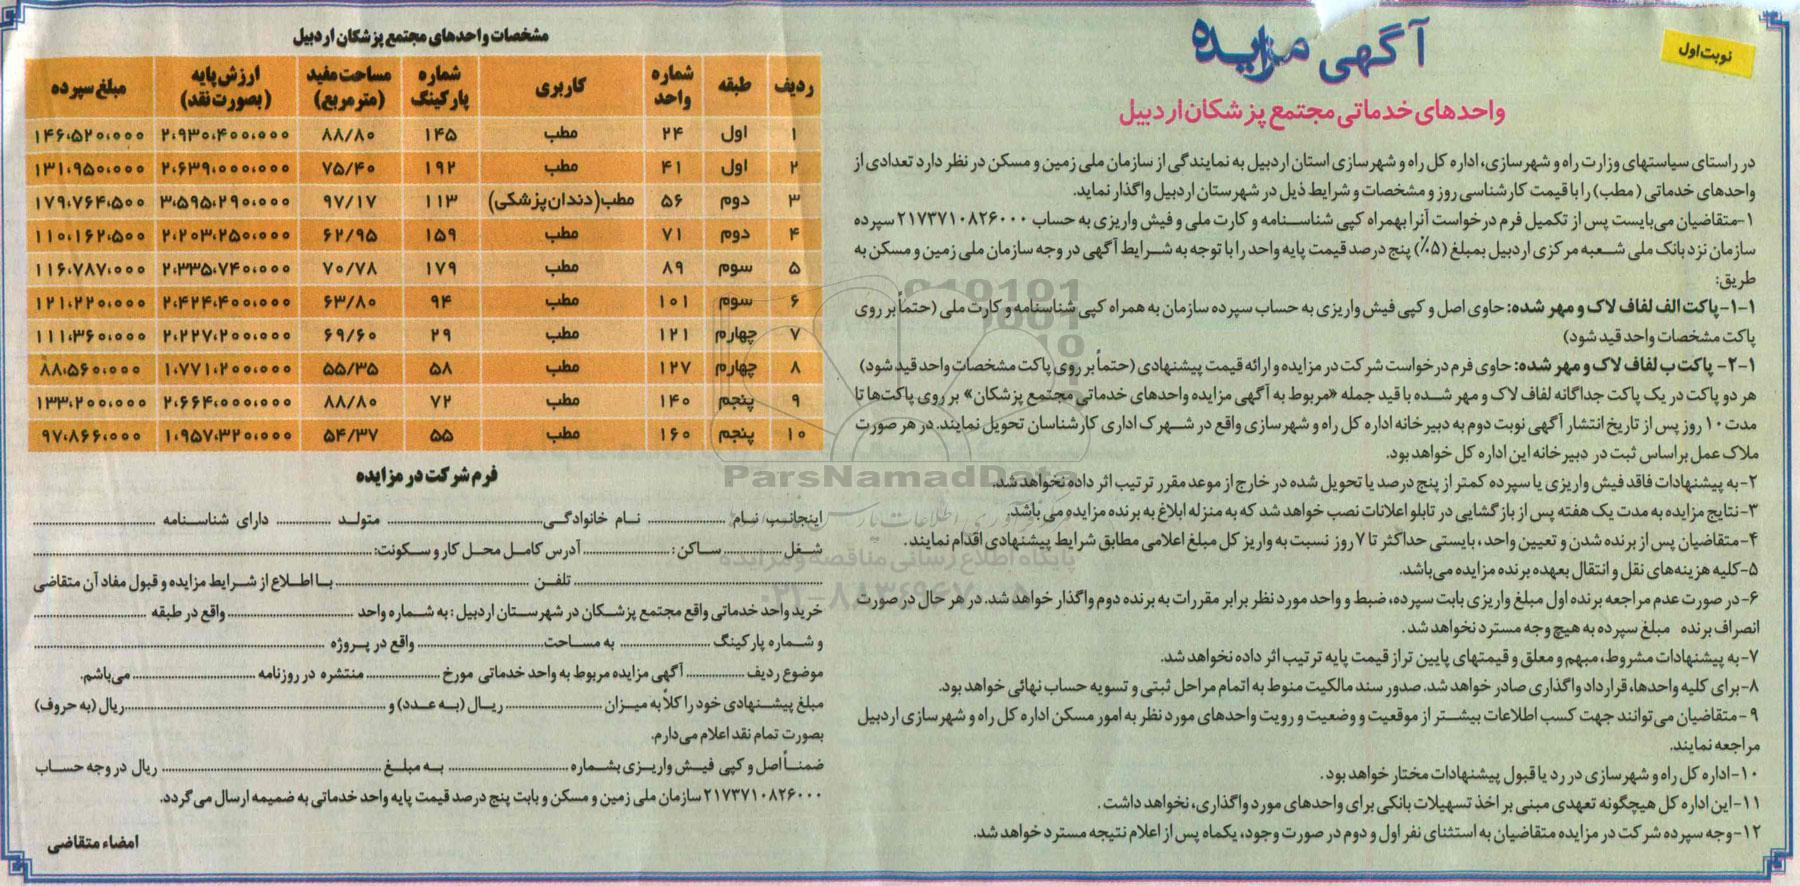 نوبت اول
آگهی مزایده
واحدهای خدماتی مجتمع پزشکان اردبیل
در راستای سیاستهای وزارت راه و شهرسازی، اداره کل راه و شهرسازی استان اردبیل به نمایندگی از سازمان ملی زمین و مسکن در نظر دارد تعدادی از
واحدهای خدماتی (مطب) را با قیمت کارشناسی روز و مشخصات و شرایط ذیل در شهرستان اردبیل واگذار نماید.
۱-متقاضیان می‌بایست پس از تکمیل فرم درخواست آنرا بهمراه کپی شناسنامه و کارت ملی و فیش واریزی به حساب ۲۱۷۳۷۱۰۸۲۶۰۰۰ سپرده
سازمان نزد بانک ملی شعبه مرکزی اردبیل بمبلغ (۵٪) پنج درصد قیمت پایه واحد را با توجه به شرایط آگهی در وجه سازمان ملی زمین و مسکن به
طریق:
۱-۱-پاکت الف لفاف لاک و مهر شده: حاوی اصل و کپی فیش واریزی به حساب سپرده سازمان به همراه کپی شناسنامه و کارت ملی (حتماً بر روی
پاکت مشخصات واحد قید شود)
۲-۱- پاکت ب لفاف لاک و مهر شده: حاوی فرم درخواست شرکت در مزایده و ارائه قیمت پیشنهادی (حتماً بر روی پاکت مشخصات واحد قید شود)
هر دو پاکت در یک پاکت جداگانه لفاف لاک و مهر شده با قید جمله «مربوط به آگهی مزایده واحدهای خدماتی مجتمع پزشکان» بر روی پاکت‌ها تا
مدت ۱۰ روز پس از تاریخ انتشار آگهی نوبت دوم به دبیرخانه اداره کل راه و شهرسازی واقع در شهرک اداری کارشناسان تحویل نمایند. در هر صورت
ملاک عمل براساس ثبت در دبیرخانه این اداره کل خواهد بود.
۲-به پیشنهادات فاقد فیش واریزی یا سپرده کمتر از پنج درصد یا تحویل شده در خارج از موعد مقرر ترتیب اثر داده نخواهد شد.
۳-نتایج مزایده به مدت یک هفته پس از بازگشایی در تابلو اعلانات نصب خواهد شد که به منزله ابلاغ به برنده مزایده می باشد.
۴-متقاضیان پس از برنده شدن و تعیین واحد، بایستی حداکثر تا ۷ روز نسبت به واریز کل مبلغ اعلامی مطابق شرایط پیشنهادی اقدام نمایند.
۵-کلیه هزینه‌های نقل و انتقال بعهده برنده مزایده می‌باشد.
۶-در صورت عدم مراجعه برنده اول مبلغ واریزی بابت سپرده، ضبط و واحد مورد نظر برابر مقررات به برنده دوم واگذار خواهد شد. در هر حال در صورت
انصراف برنده مبلغ سپرده به هیچ وجه مسترد نخواهد شد.
۷-به پیشنهادات مشروط، مبهم و معلق و قیمتهای پایین تر از قیمت پایه ترتیب اثر داده نخواهد شد.
۸-برای کلیه واحدها، قرارداد واگذاری صادر خواهد شد. صدور سند مالکیت منوط به اتمام مراحل ثبتی و تسویه حساب نهائی خواهد بود.
۹-متقاضیان می‌توانند جهت کسب اطلاعات بیشتر از موقعیت و وضعیت و رویت واحدهای مورد نظر به امور مسکن اداره کل راه و شهرسازی اردبیل
مراجعه نمایند.
۱۰-اداره کل راه و شهرسازی در رد یا قبول پیشنهادات مختار خواهد بود.
۱۱-این اداره کل هیچگونه تعهدی مبنی بر اخذ تسهیلات بانکی برای واحدهای مورد واگذاری، نخواهد داشت.
۱۲-وجه سپرده شرکت در مزایده متقاضیان به استثنای نفر اول و دوم در صورت وجود، یکماه پس از اعلام نتیجه مسترد خواهد شد.
مشخصات واحدهای مجتمع پزشکان اردبیل
ردیف طبقه شماره واحد کاربری شماره پارکینگ مساحت مفید (مترمربع) ارزش پایه (بصورت نقد) مبلغ سپرده
۱ اول ۲۴ مطب ۱۴۵ ۸۸/۸۰ ۲،۹۳۰،۴۰۰،۰۰۰ ۱۴۶،۵۲۰،۰۰۰
۲ اول ۴۱ مطب ۱۹۲ ۷۵/۴۰ ۲،۶۳۹،۰۰۰،۰۰۰ ۱۳۱،۹۵۰،۰۰۰
۳ دوم ۵۶ مطب(دندان‌پزشکی) ۱۱۳ ۹۷/۱۷ ۳،۵۹۵،۲۹۰،۰۰۰ ۱۷۹،۷۶۴،۵۰۰
۴ دوم ۷۱ مطب ۱۵۹ ۶۲/۹۵ ۲،۲۰۳،۲۵۰،۰۰۰ ۱۱۰،۱۶۲،۵۰۰
۵ سوم ۸۹ مطب ۱۷۹ ۷۰/۷۸ ۲،۳۳۵،۷۴۰،۰۰۰ ۱۱۶،۷۸۷،۰۰۰
۶ سوم ۱۰۱ مطب ۹۴ ۶۳/۸۰ ۲،۴۲۴،۴۰۰،۰۰۰ ۱۲۱،۲۲۰،۰۰۰
۷ چهارم ۱۲۱ مطب ۲۹ ۶۹/۶۰ ۲،۲۲۷،۲۰۰،۰۰۰ ۱۱۱،۳۶۰،۰۰۰
۸ چهارم ۱۲۷ مطب ۵۸ ۵۵/۳۵ ۱،۷۷۱،۲۰۰،۰۰۰ ۸۸،۵۶۰،۰۰۰
۹ پنجم ۱۴۰ مطب ۷۲ ۸۸/۸۰ ۲،۶۶۴،۰۰۰،۰۰۰ ۱۳۳،۲۰۰،۰۰۰
۱۰ پنجم ۱۶۰ مطب ۵۵ ۵۴/۳۷ ۱،۹۵۷،۳۲۰،۰۰۰ ۹۷،۸۶۶،۰۰۰
فرم شرکت در مزایده
اینجانب نام ........ نام خانوادگی ........ متولد ........ دارای شناسنامه ........
شغل ........ ساکن: ........ آدرس کامل محل کار و سکونت: ........
........ تلفن ........ با اطلاع از شرایط مزایده و قبول مفاد آن متقاضی
خرید واحد خدماتی واقع مجتمع پزشکان در شهرستان اردبیل: به شماره واحد ........ واقع در طبقه ........
و شماره پارکینگ ........ به مساحت ........ واقع در پروژه ........
موضوع ردیف ........ آگهی مزایده مربوط به واحد خدماتی مورخ ........ منتشره در روزنامه ........ می‌باشم.
مبلغ پیشنهادی خود را کلاً به میزان ........ ریال (به عدد) و ........ ریال (به حروف)
بصورت تمام نقد اعلام می‌دارم.
ضمناً اصل و کپی فیش واریزی بشماره ........ به مبلغ ........ ریال در وجه حساب
۲۱۷۳۷۱۰۸۲۶۰۰۰ سازمان ملی زمین و مسکن و بابت پنج درصد قیمت پایه واحد خدماتی به ضمیمه ارسال می گردد.
امضاء متقاضی
ParsNamadData
پایگاه اطلاع رسانی مناقصه و مزایده